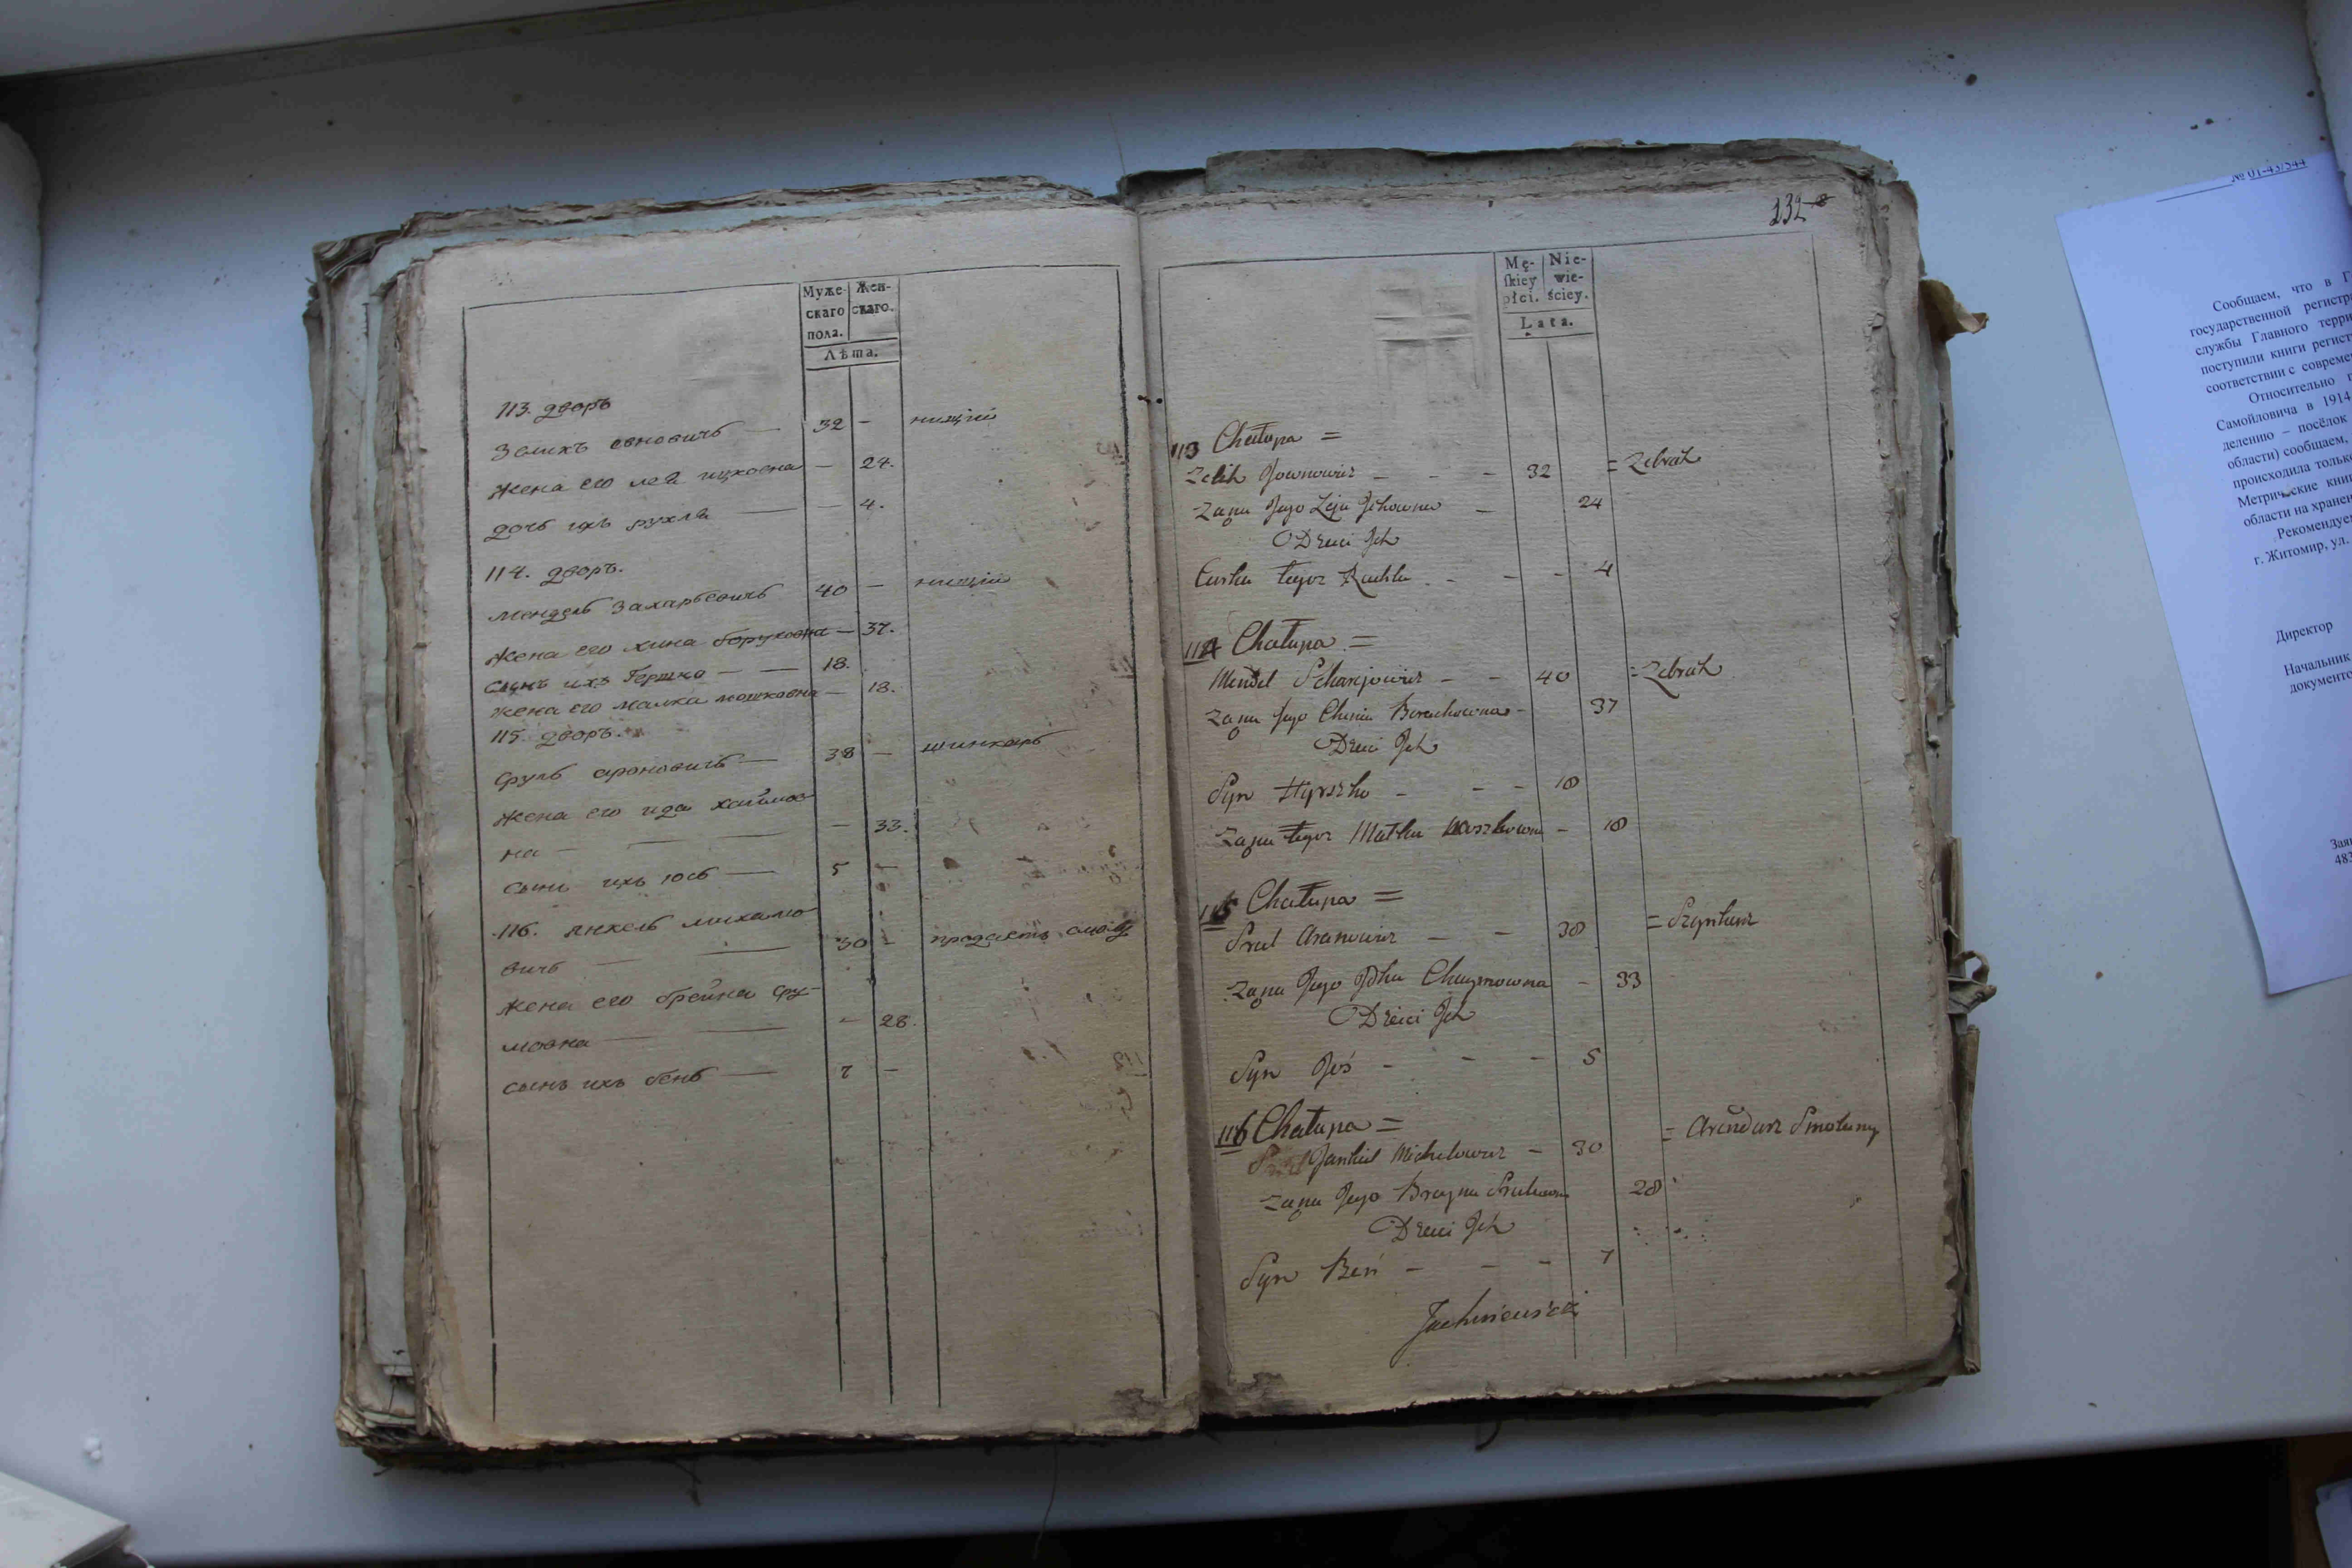 Муже-
скаго
пола.
Жен-
скаго.
Лѣта.
113. дворъ
Зелихъ овновичь — 32 — нищій
жена его лея ицковна — 24.
дочь ихъ рухля — — 4.
114. дворъ.
мендель Захарьевичь 40 — нищій
жена его хина боруховна — 37.
сынъ ихъ Гершко — — 18.
жена его малка мошковна — 18.
115. дворъ.
сруль ароновичь — 38 — шинкарь
жена его ида хаимов
на — — — 33.
сынъ ихъ юсь — 5 —
116. янкель михало
вичь — — 30 — продаетъ
жена его брейна сру-
ловна — — — 28.
сынъ ихъ бень — 7 —
132
Mę-
ſkiey
płci.
Nie-
wie-
ściey.
Lata.
113 Chałupa =
Zelik Jownowicz — — 32 = Zebrak
Zana Jego Leja Ickowna — 24
Dzieci Ich
Curka tegoż Ruchla - - - 4
114 Chałupa =
Mendel Scharjowicz - - 40 = Zebrak
Zana Jego Chinia Boruchowna - 37
Dzieci Ich
Syn Hyrszko - - - 18
Zana tegoż Małka Moszkowna - 18
115 Chałupa =
Srul Aranowicz — - 38 = Szynkarz
Zana Jego Idka Chaymowna - 33
Dzieci Ich
Syn Joś - - - 5
116 Chałupa =
Jankiel Michelowicz - 30 = Arendarz Smolarny
Zana Jego Brayna Srulowna 28
Dzieci Ich
Syn Beń - - - 7
№ 01-43/544
Сообщаем, что в Г
государственной регистр
службы Главного терри
поступили книги регист
соответствии с совреме
Относительно
Самойловича в 1914
делению – посёлок
области) сообщаем,
происходила только
Метрические книг
области на хранен
Рекомендуем
г. Житомир, ул.
Директор
Начальник
документо
483